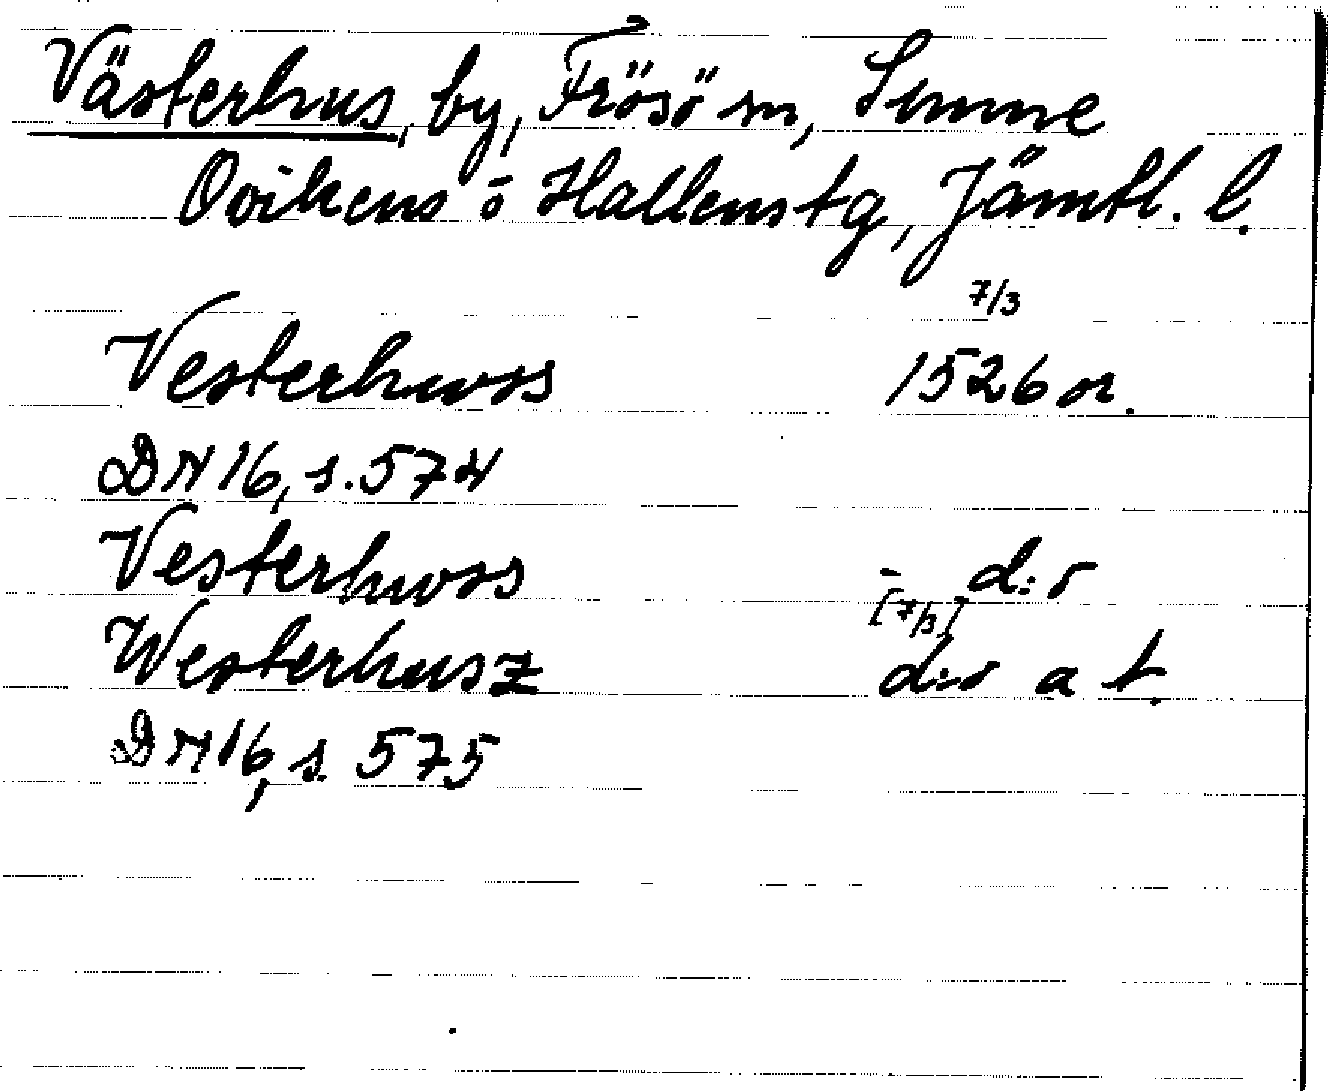 Västerhus, by, Frösö sn, Sunne
Ovikens o Hallens tg, Jämtl. l.
7/3
Vesterhwss 1526 or.
DN 16, s. 574
Vesterhwss - d:o
[7/3]
Westerhusz d:o a t.
DN 16, s. 575